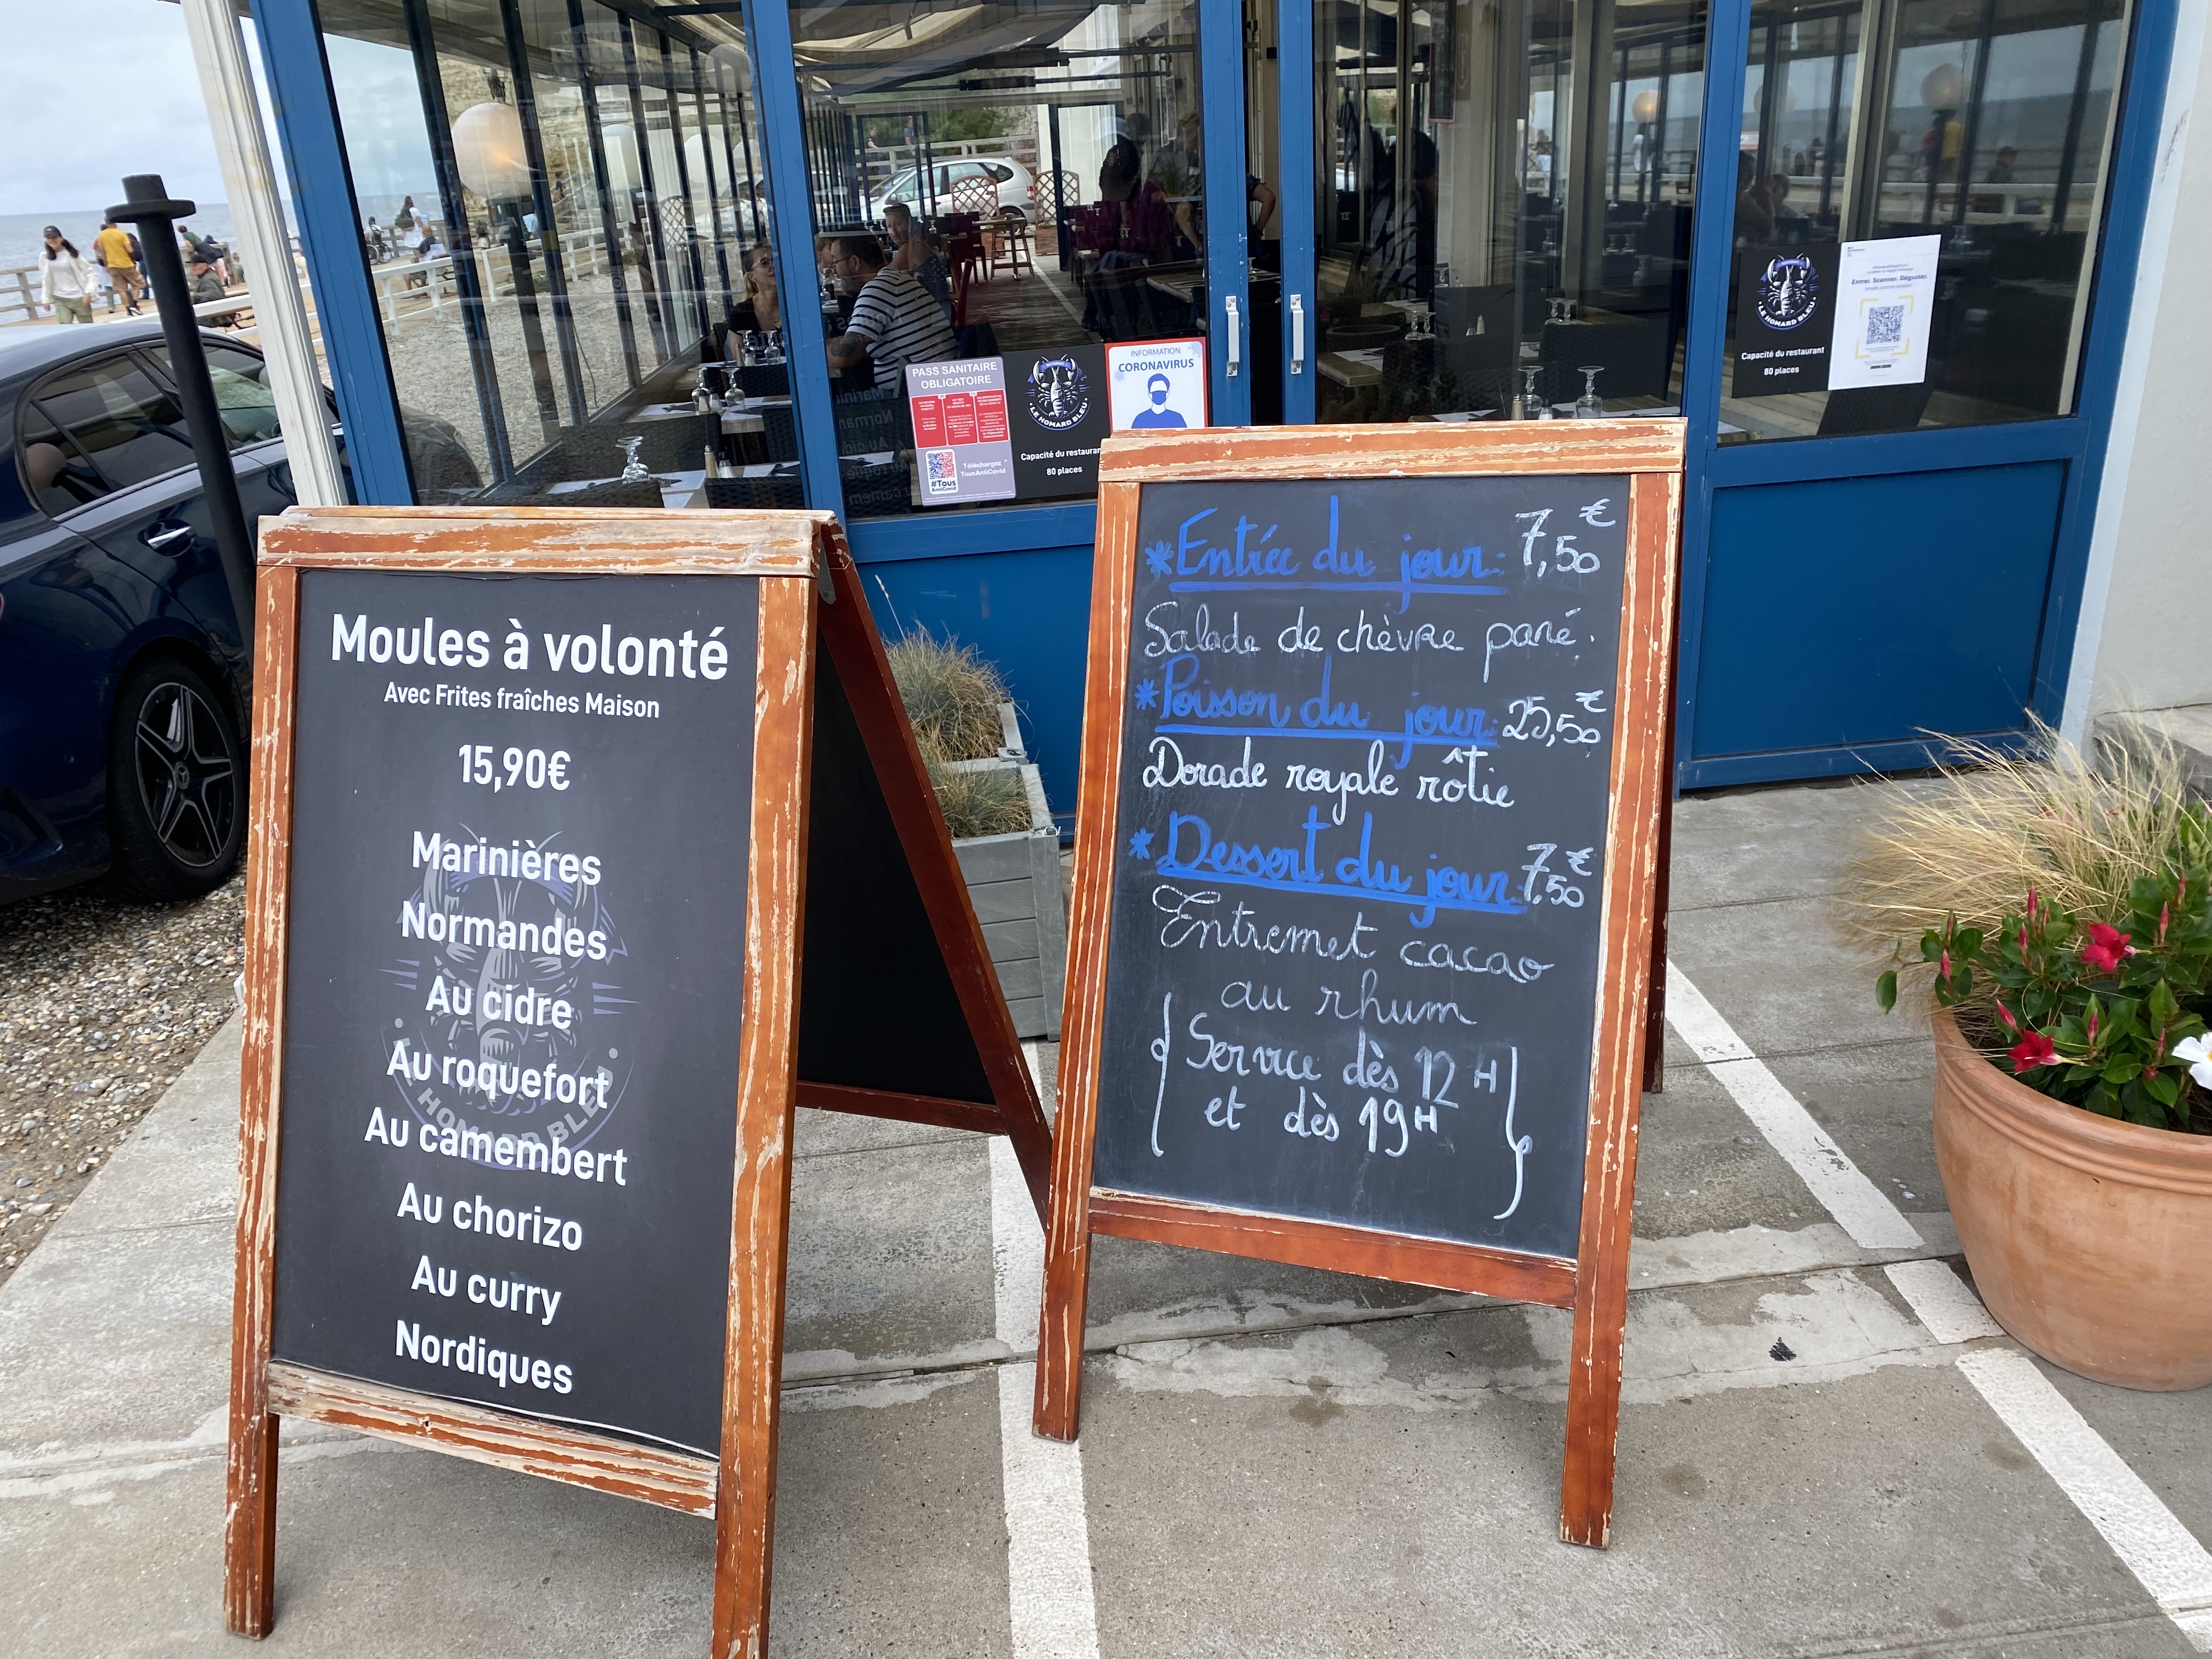 Moules à volonté
Avec Frites fraîches Maison
15,90€
Marinières
Normandes
Au cidre
Au roquefort
Au camembert
Au chorizo
Au curry
Nordiques
HOMARD BLEU
*Entrée du jour: 7,50€
Salade de chèvre pané.
*Poisson du jour: 25,50€
Dorade royale rôtie
*Dessert du jour: 7,50€
Entremet cacao
au rhum
{Service dès 12H
et dès 19H}
PASS SANITAIRE
OBLIGATOIRE
Téléchargez
TousAntiCovid
#Tous
AntiCovid
LE HOMARD BLEU
Capacité du restaurant
80 places
INFORMATION
CORONAVIRUS
LE HOMARD BLEU
Capacité du restaurant
80 places
Entrer. Scanner. Déguster.